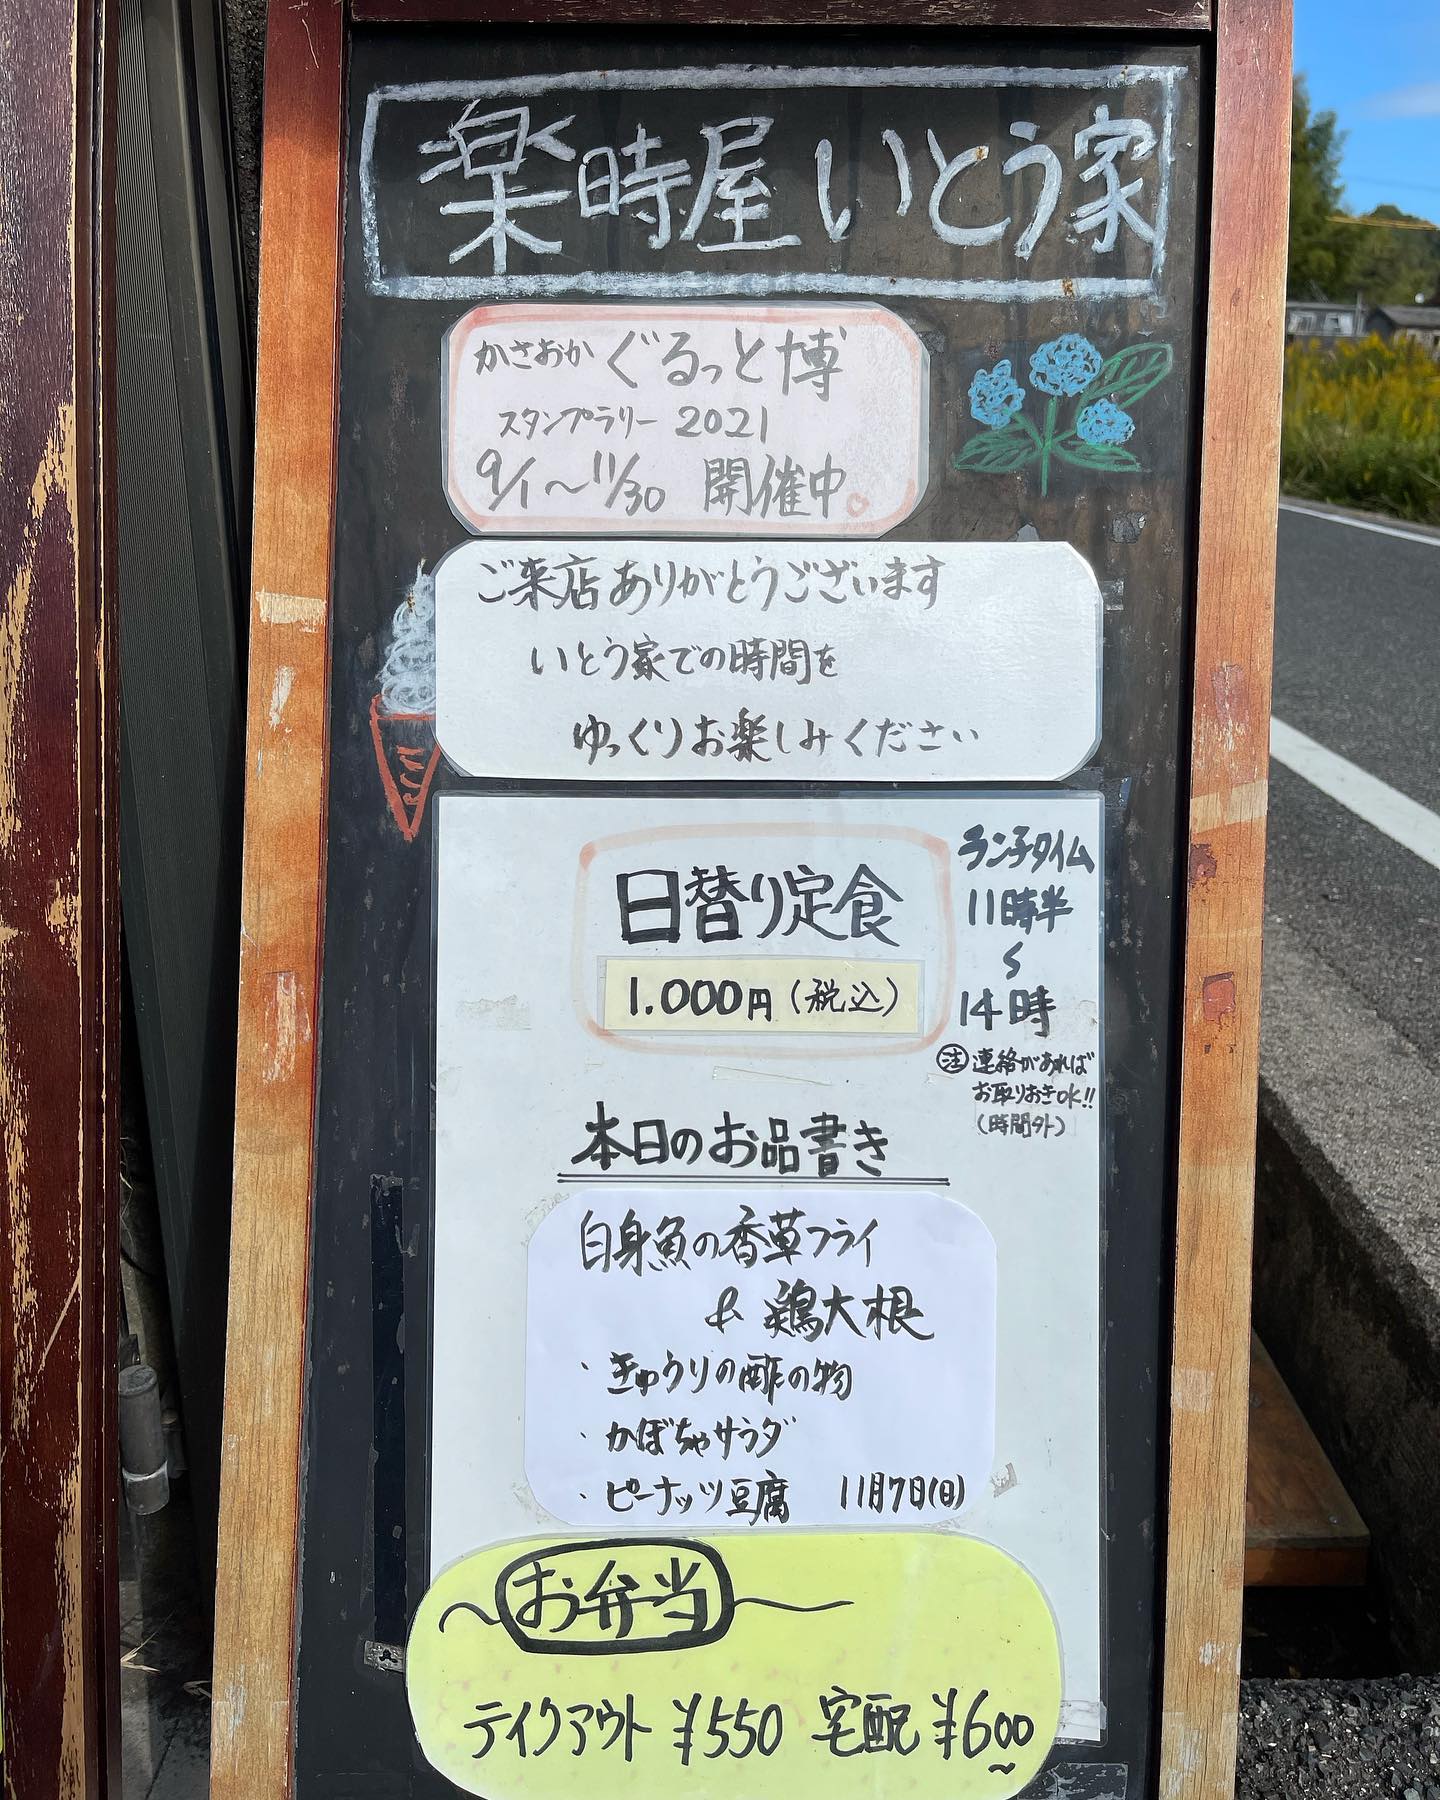 楽時屋いとう家
かさおか ぐるっと博
スタンプラリー 2021
9/1〜11/30 開催中。
ご来店ありがとうございます
いとう家での時間を
ゆっくりお楽しみください
日替り定食
1.000円(税込)
ランチタイム
11時半
〜
14時
㊟連絡があれば
お取りおきOK!!
(時間外)
本日のお品書き
白身魚の香草フライ
& 鶏大根
・きゅうりの酢の物
・かぼちゃサラダ
・ピーナッツ豆腐 11月7日(日)
〜お弁当〜
テイクアウト ¥550 宅配 ¥600〜